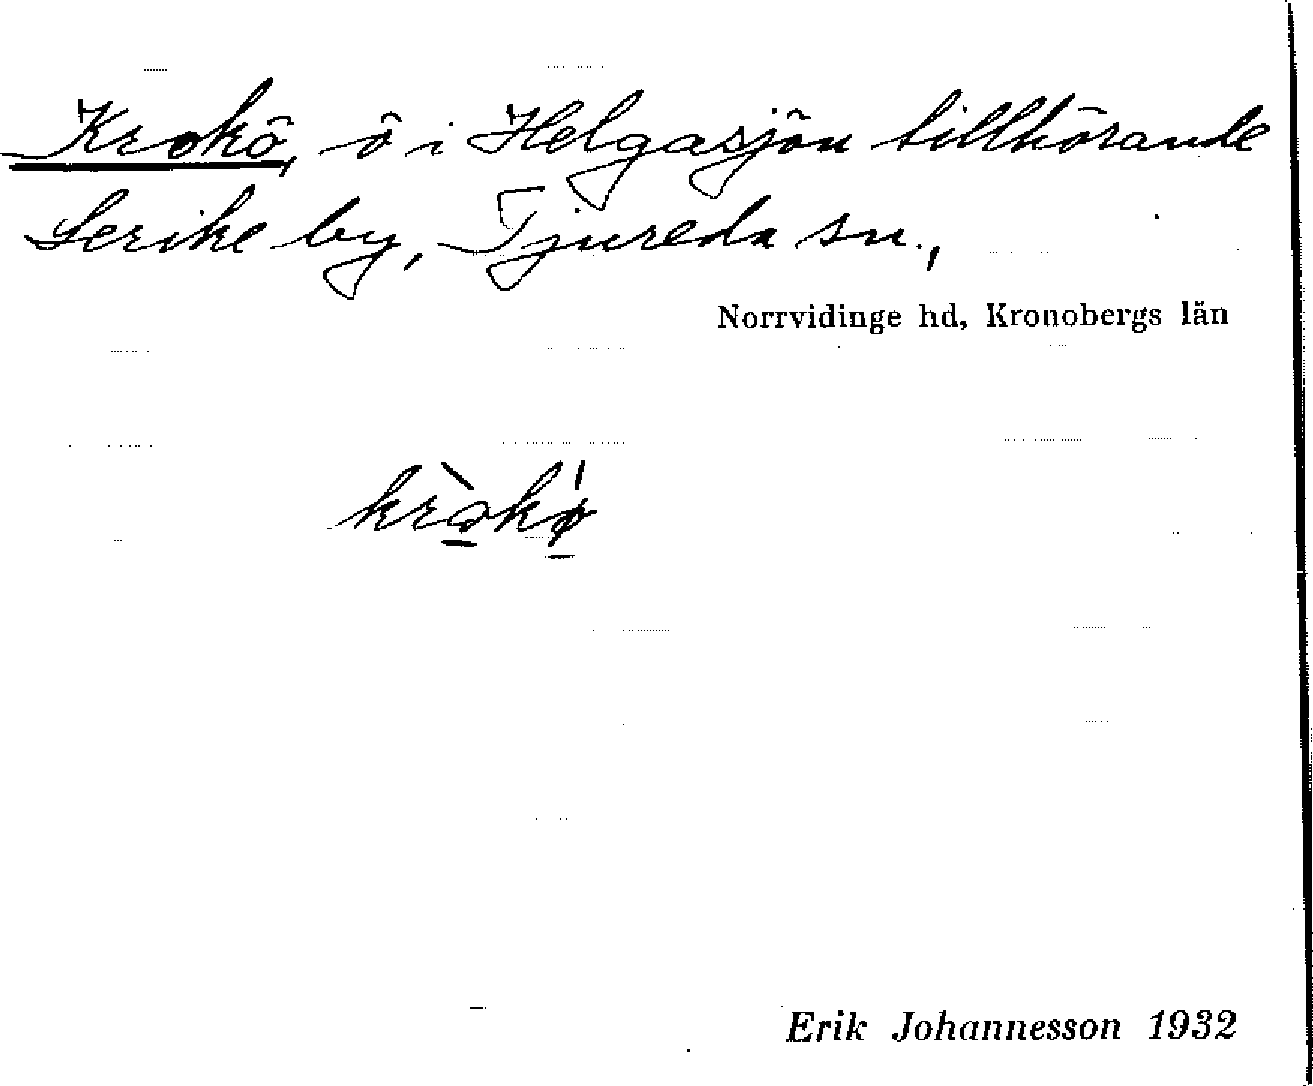 Krokö, ö i Helgasjön tillhörande
Lerike by, Tjureda sn.,
Norrvidinge hd, Kronobergs län
Erik Johannesson 1932